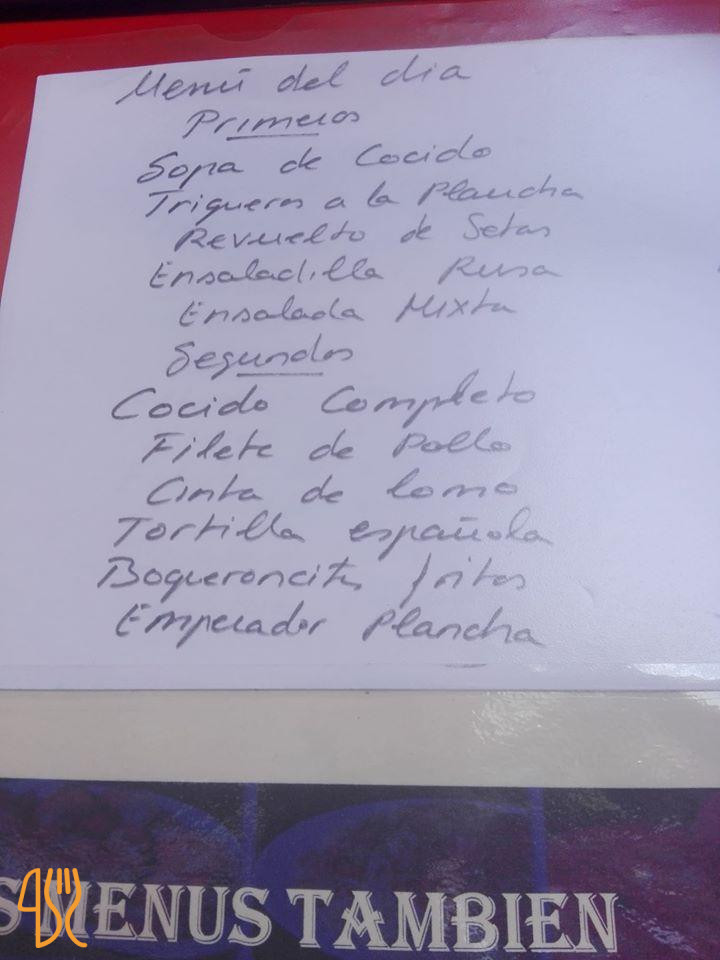 Menú del dia
Primeros
Sopa de Cocido
Trigueros a la Plancha
Revuelto de Setas
Ensaladilla Rusa
Ensalada Mixta
Segundos
Cocido Completo
Filete de Pollo
Cinta de lomo
Tortilla española
Boqueroncitos fritos
Emperador Plancha
S MENUS TAMBIEN